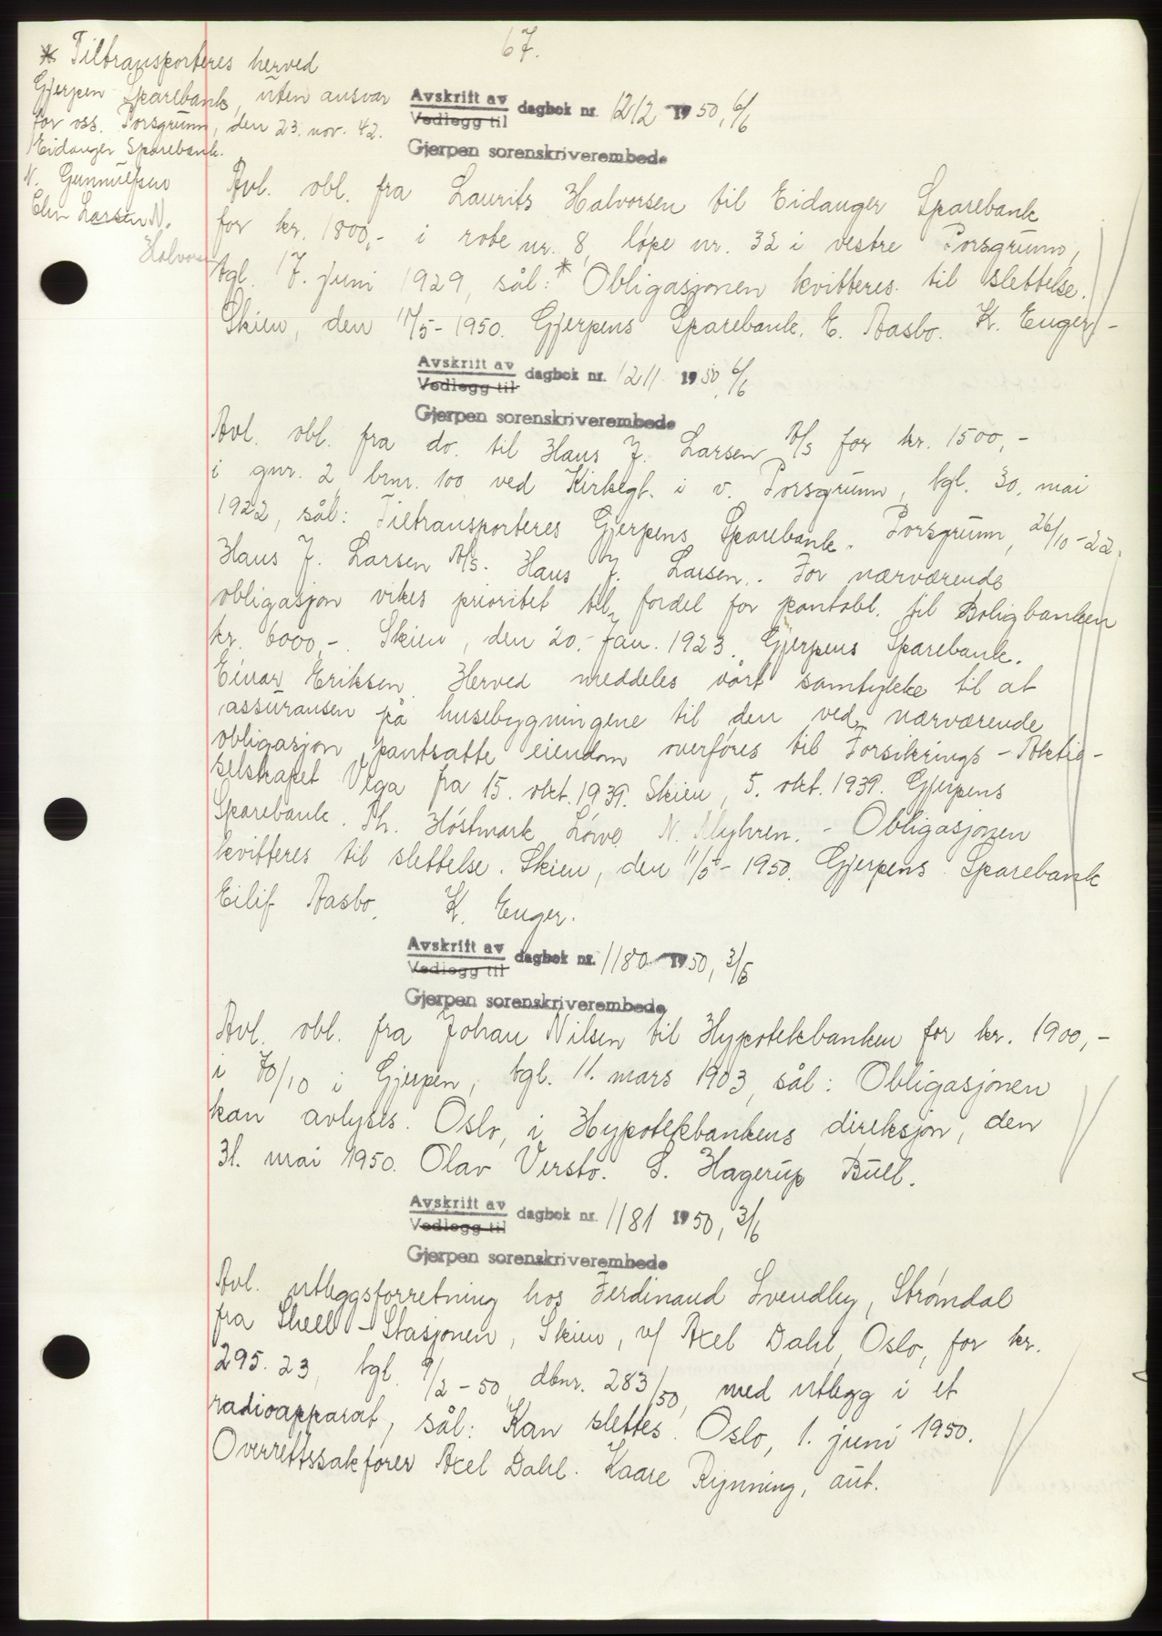 67.
* Tiltransporteres herved
Gjerpen Sparebank, uten ansvar
for oss. Porsgrunn, den 23. nov. 42.
Eidanger Sparebank.
N. Gunnulfsen
Elin Larsen N.
Halvorsen
Avskrift av
Vedlegg til
dagbok nr. 1212 1950, 6/6
Gjerpen sorenskriverembede
Avl. obl. fra Laurits Halvorsen til Eidanger Sparebank
for kr. 1800,- i rode nr. 8, løpe nr. 32 i vestre Porsgrunn,
tgl. 17. juni 1929, sål: * Obligasjonen kvitteres til slettelse.
Skien, den 11/5-1950. Gjerpens Sparebank. E. Aasbo. K. Enger.-
Avskrift av
Vedlegg til
dagbok nr. 1211 1950, 6/6
Gjerpen sorenskriverembede
Avl. obl. fra do. til Hans J. Larsen A/S for kr. 1500,-
i gnr. 2, brnr. 100 ved Kirkegt. i v. Porsgrunn, tgl. 30. mai
1922, sål: Tiltransporteres Gjerpens Sparebank. Porsgrunn, 26/10-22.
Hans J. Larsen A/S. Hans J. Larsen. For nærværende
obligasjon vikes prioritet til fordel for pantobl. til Boligbanken
kr. 6000,-. Skien, den 20. jan. 1923. Gjerpens Sparebank.
Einar Eriksen. Herved meddeles vårt samtykke til at
assuransen på husebygningene til den ved nærværende
obligasjon pantsatte eiendom overføres til Forsikrings-Aktie-
selskapet Viga fra 15. okt. 1939. Skien, 5. okt. 1939. Gjerpens
Sparebank. Th. Høstmark Løwe N. Myhren. - Obligasjonen
kvitteres til slettelse. Skien, den 11/5-1950. Gjerpens Sparebank
Eilif Aasbo. K. Enger.
Avskrift av
Vedlegg til
dagbok nr. 1180 1950, 3/6
Gjerpen sorenskriverembede
Avl. obl. fra Johan Nilsen til Hypotekbanken for kr. 1900,-
i 70/10 i Gjerpen, tgl. 11. mars 1903, sål: Obligasjonen
kan avlyses. Oslo, i Hypotekbankens direksjon, den
31. mai 1950. Olav Versto. S. Hagerup Bull.
Avskrift av
Vedlegg til
dagbok nr. 1181 1950, 3/6
Gjerpen sorenskriverembede
Avl. utleggsforretning hos Ferdinand Svendby, Strømdal
fra Shell-Stasjonen, Skien, v/ Axel Dahl, Oslo, for kr.
295.23, tgl. 9/2-50, dbnr. 283/50, med utlegg i et
radioapparat, sål: Kan slettes. Oslo, 1. juni 1950.
Overrettssakfører Axel Dahl. Kaare Rynning, aut.